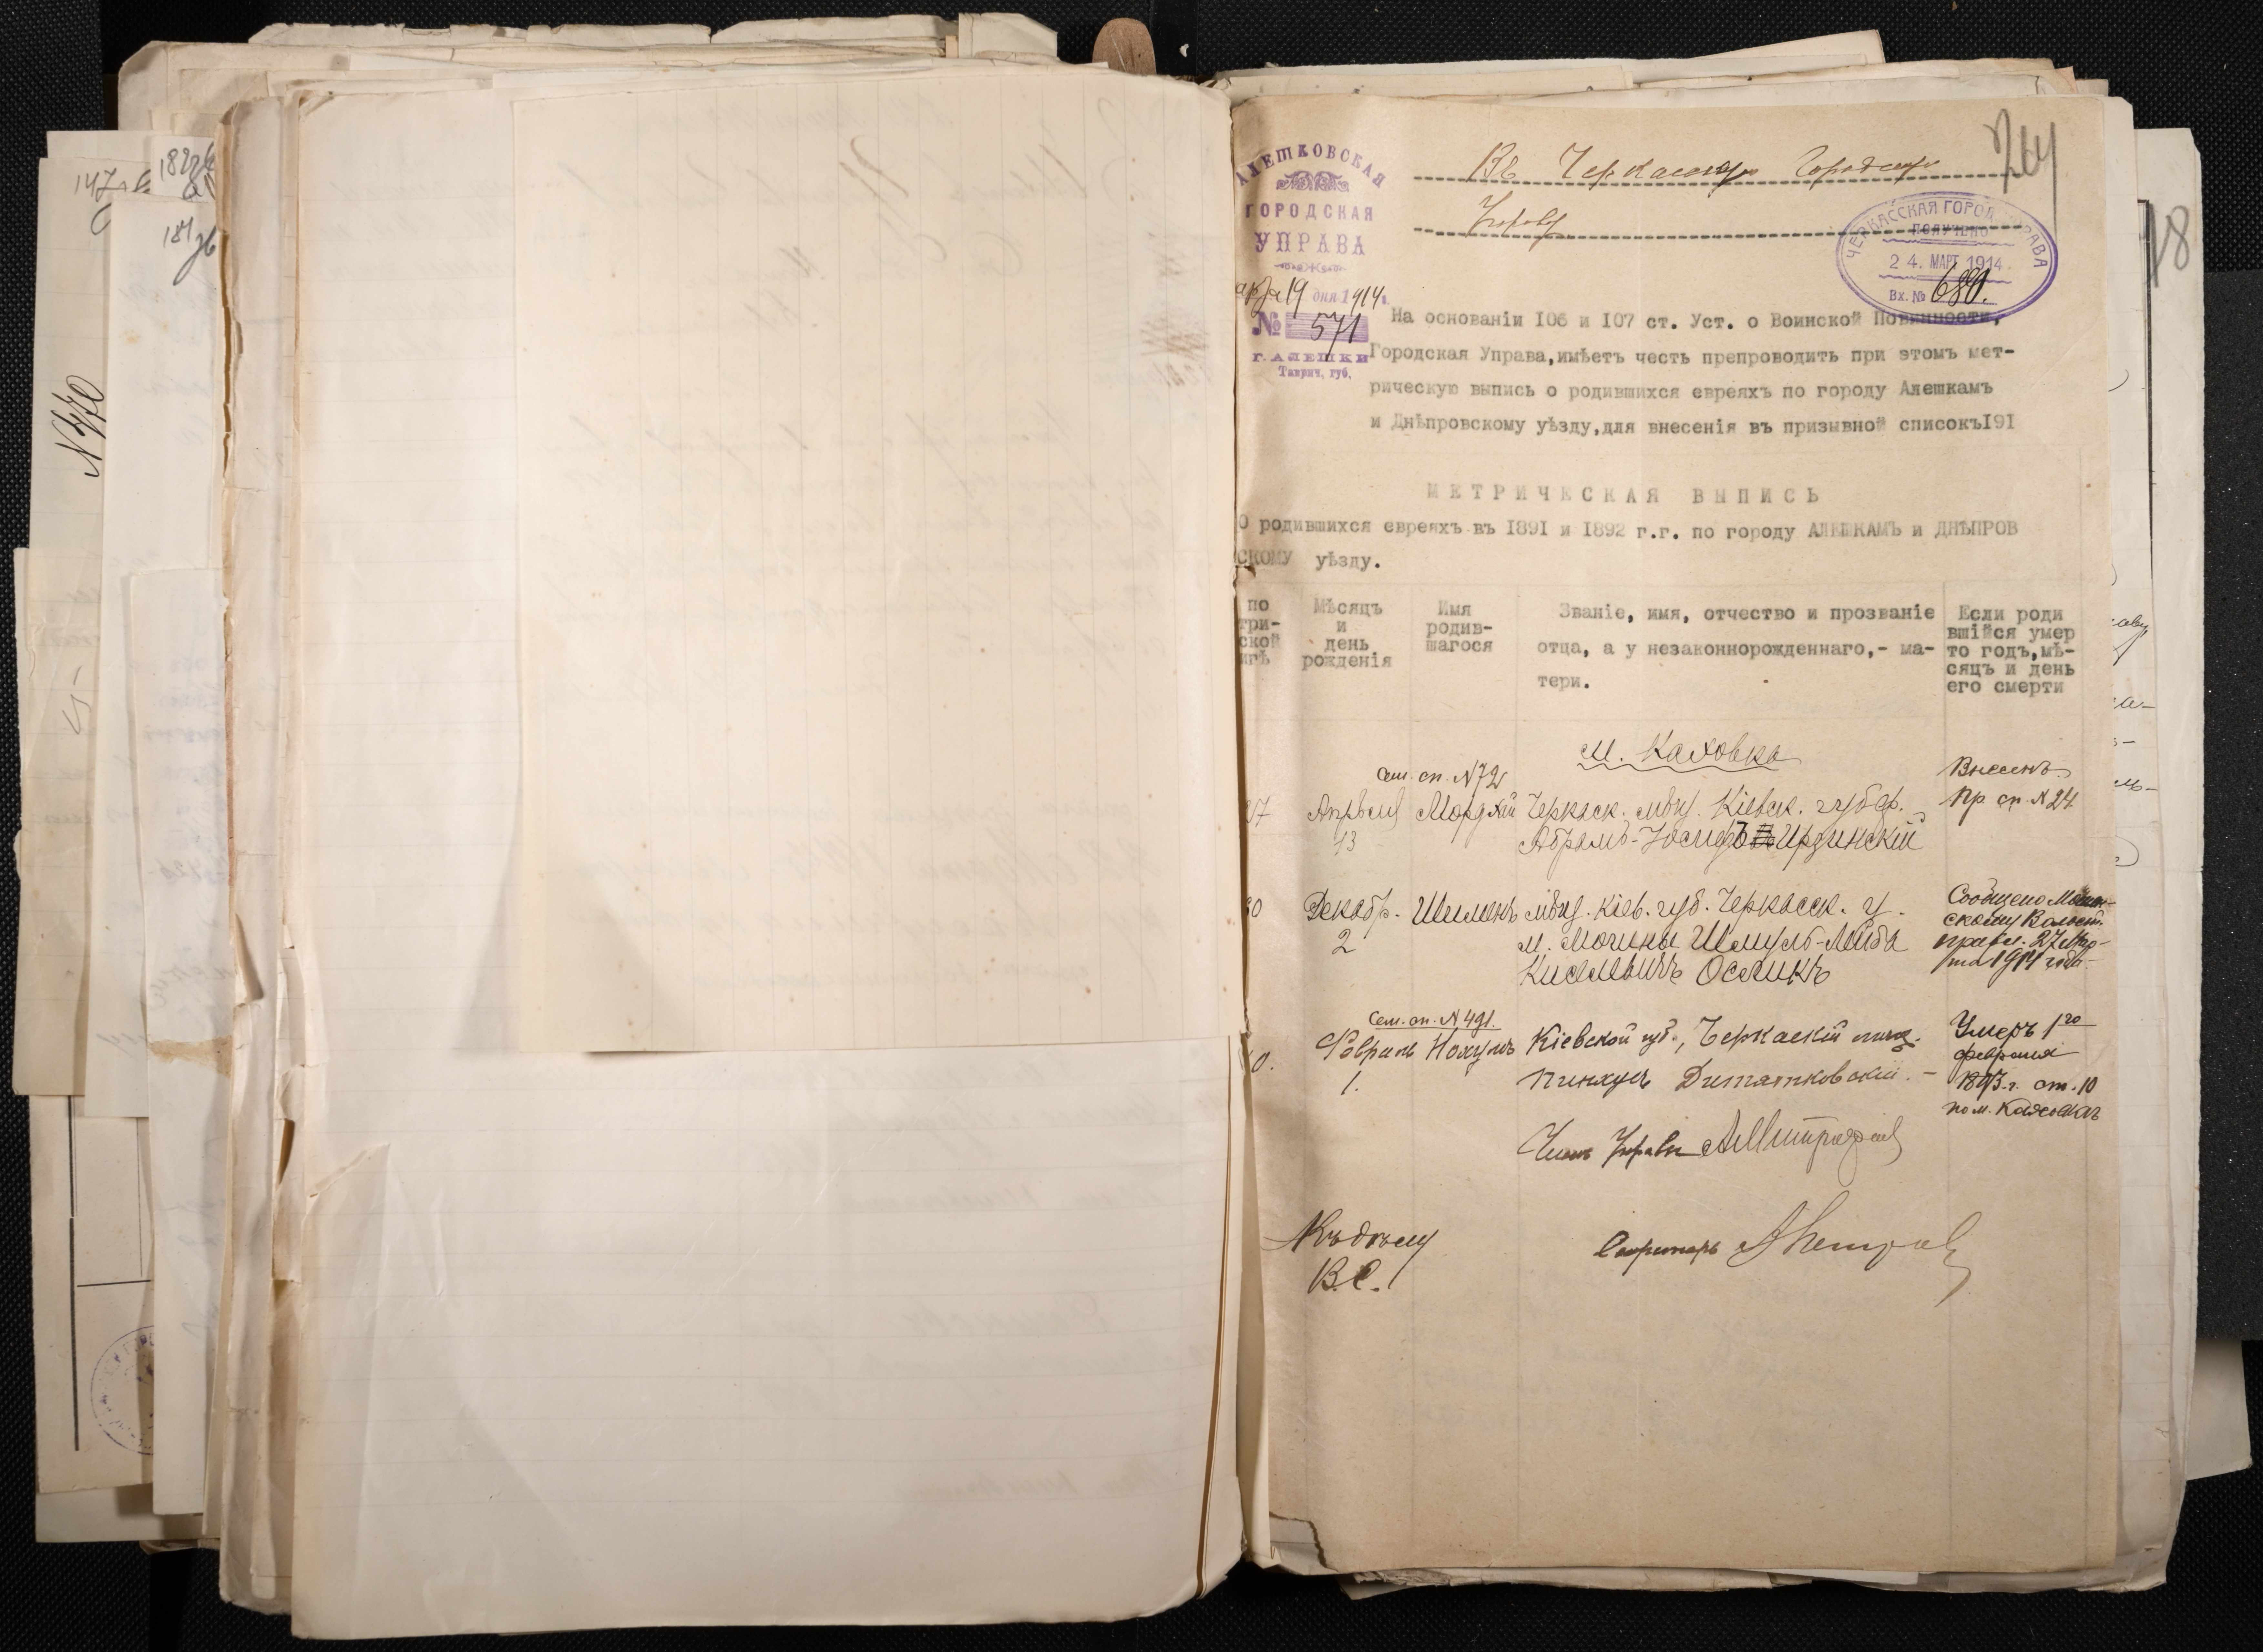 147
182
181
N 770
264
18
АЛЕШКОВСКАЯ
ГОРОДСКАЯ
УПРАВА
19 дня 1914 г.
№ 571
Г. АЛЕШКИ
Таврич. губ.
Въ Черкасскую Городскую
Управу
ЧЕРКАССКАЯ ГОРОД. УПРАВА
ПОЛУЧЕНО
24. МАРТ 1914.
Вх. № 680.
На основаніи I06 и I07 ст. Уст. о Воинской Повинности,
Городская Управа,имѣетъ честь препроводить при этомъ мет-
рическую выпись о родившихся евреяхъ по городу Алешкамъ
и Днѣпровскому уѣзду,для внесенія въ призывной списокъI91
МЕТРИЧЕСКАЯ ВЫПИСЬ
О родившихся евреяхъ въ I891 и I892 г.г. по городу АЛЕШКАМЪ и ДНѢПРОВ
СКОМУ уѣзду.
по
три-
ской
игѣ
Мѣсяцъ
и
день
рожденія
Имя
родив-
шагося
Званіе, имя, отчество и прозваніе
отца, а у незаконнорожденнаго,- ма-
тери.
Если роди
вшійся умер
то годъ,мѣ-
сяцъ и день
его смерти
м. Каховка
Сем. сп. N 72
Апрѣля Мордхай Черкаск. мѣщ. Кіевск. губер.
13 Абрамъ-Іосифъ Ирдинскій
Внесенъ
Пр. сп. N 24
Декабр. Шименъ мѣщ. Кіев. губ. Черкасск. у.
2 м. Мошны Шмуль-Лейба
Киселевичъ Осликъ
Сообщено Мошен-
скому Волост.
правл. 27 Мар-
та 1914 года
Сем. сп. N 491.
Февраль Нохумъ Кіевской губ., Черкаскій мищ.
1. Пинхусъ Дитятковскій. -
Умеръ 1го
февраля
1893 г. от. 10
по м. Каховкѣ
Членъ Управы
Къ дѣлу
В.С.
Секретарь